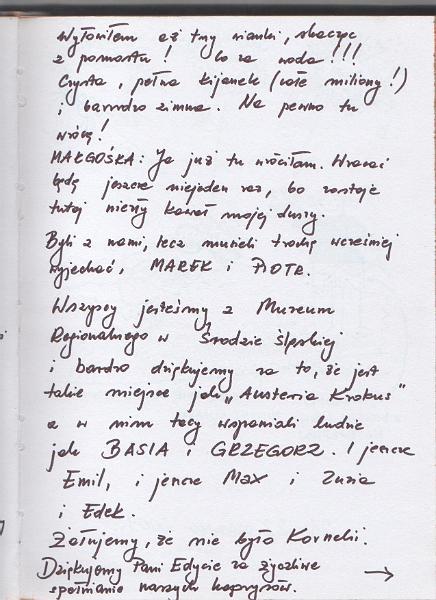 Wyłowiłem aż trzy wianki, skacząc
z pomostu! Co za woda!!!
Czysta, pełna kijanek (całe miliony!)
i barrrdzo zimna. Na pewno tu
wrócę!
MAŁGOŚKA: Ja już tu wróciłam. Wracać
będę jeszcze niejeden raz, bo zostaje
tutaj niezły kawał mojej duszy.
Byli z nami, lecz musieli trochę wcześniej
wyjechać, MAREK i PIOTR.
Wszyscy jesteśmy z Muzeum
Regionalnego w Środzie Śląskiej
i bardzo dziękujemy za to, że jest
takie miejsce jak „Austeria Krokus"
a w nim tacy wspaniali ludzie
jak BASIA i GRZEGORZ. I jeszcze
Emil, i jeszcze Max i Zuzia
i Edek.
Żałujemy, że nie było Kornelii.
Dziękujemy Pani Edycie za życzliwe
spełnianie naszych kaprysów. →